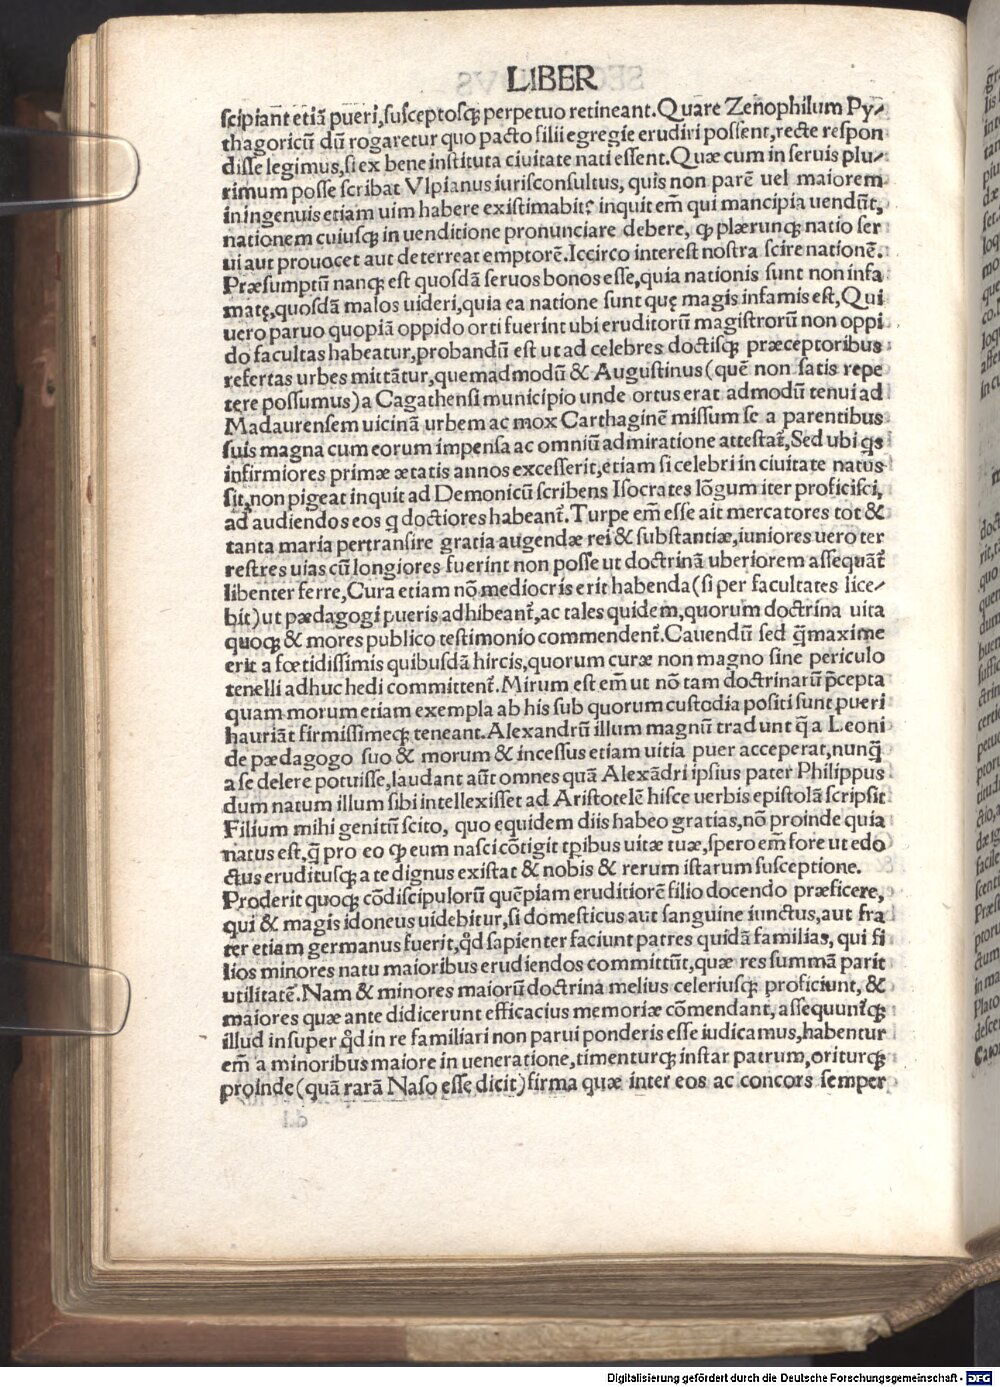 LIBER
ſcipiant etiā pueri, ſuſceptoſq; perpetuo retineant. Quare Zenophilum Py⸗
thagoricū dū rogaretur quo pacto filii egregie erudiri poſſent, recte reſpon
diſſe legimus, ſi ex bene inſtituta ciuitate nati eſſent. Quæ cum in ſeruis plu⸗
rimum poſſe ſcribat Vlpianus iurisconſultus, quis non parē uel maiorem
in ingenuis etiam uim habere exiſtimabit? inquit em̄ qui mancipia uendūt,
nationem cuiuſq; in uenditione pronunciare debere, ꝙ plærunq; natio ſer
ui aut prouocet aut deterreat emptorē. Iccirco intereſt noſtra ſcire nationē.
Præſumptū nanq; eſt quoſdā ſeruos bonos eſſe, quia nationis ſunt non infa
matę, quoſdā malos uideri, quia ea natione ſunt quę magis infamis eſt, Qui
uero paruo quopiā oppido orti fuerint ubi eruditorū magiſtrorū non oppi
do facultas habeatur, probandū eſt ut ad celebres doctiſq; præceptoribus
refertas urbes mittātur, quemadmodū & Auguſtinus (quē non ſatis repe
tere poſſumus) a Cagathenſi municipio unde ortus erat admodū tenui ad
Madaurenſem uicinā urbem ac mox Carthaginē miſſum ſe a parentibus
ſuis magna cum eorum impenſa ac omniū admiratione atteſtat᷑, Sed ubi q̄s
infirmiores primæ ætatis annos exceſſerit, etiam ſi celebri in ciuitate natus
ſit, non pigeat inquit ad Demonicū ſcribens Iſocrates lōgum iter proficiſci,
ad audiendos eos q̄ doctiores habeant᷑. Turpe em̄ eſſe ait mercatores tot &
tanta maria pertranſire gratia augendæ rei & ſubſtantiæ, iuniores uero ter
reſtres uias cū longiores fuerint non poſſe ut doctrinā uberiorem aſſequāt᷑
libenter ferre, Cura etiam nō mediocris erit habenda (ſi per facultates lice⸗
bit) ut pædagogi pueris adhibeant᷑, ac tales quidem, quorum doctrina uita
quoq; & mores publico teſtimonio commendent᷑. Cauendū ſed q̄ maxime
erit a fœtidiſſimis quibuſdā hircis, quorum curæ non magno ſine periculo
tenelli adhuc hedi committent᷑. Mirum eſt em̄ ut nō tam doctrinarū p̄cepta
quam morum etiam exempla ab his ſub quorum cuſtodia poſiti ſunt pueri
hauriāt firmiſſimeq; teneant. Alexandrū illum magnū tradunt q̄ a Leoni
de pædagogo ſuo & morum & inceſſus etiam uitia puer acceperat, nunq̄
a ſe delere potuiſſe, laudant aūt omnes quā Alexādri ipſius pater Philippus
dum natum illum ſibi intellexiſſet ad Ariſtotelē hiſce uerbis epiſtolā ſcripſit
Filium mihi genitū ſcito, quo equidem diis habeo gratias, nō proinde quia
natus eſt, q̄ pro eo ꝙ eum naſci cōtigit tp̄ibus uitæ tuæ, ſpero em̄ fore ut edo
ctus erudituſq; a te dignus exiſtat & nobis & rerum iſtarum ſuſceptione.
Proderit quoq; cōdiſcipulorū quēpiam eruditiorē filio docendo præficere,
qui & magis idoneus uidebitur, ſi domeſticus aut ſanguine iunctus, aut fra
ter etiam germanus fuerit, qd̄ ſapienter faciunt patres quidā familias, qui fi
lios minores natu maioribus erudiendos committūt, quæ res ſummā parit
utilitatē. Nam & minores maiorū doctrina melius celeriuſq; proficiunt, &
maiores quæ ante didicerunt efficacius memoriæ cōmendant, aſſequunt᷑q;
illud inſuper qd̄ in re familiari non parui ponderis eſſe iudicamus, habentur
em̄ a minoribus maiore in ueneratione, timenturq; inſtar patrum, oriturq;
proinde (quā rarā Naſo eſſe dicit) firma quæ inter eos ac concors ſemper
Digitalisierung gefördert durch die Deutsche Forschungsgemeinschaft - DFG